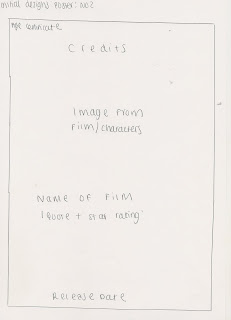 initial designs poster: no2
age certificate
Credits
Image from
film/characters
Name of film
1 quote + star rating
Release Date